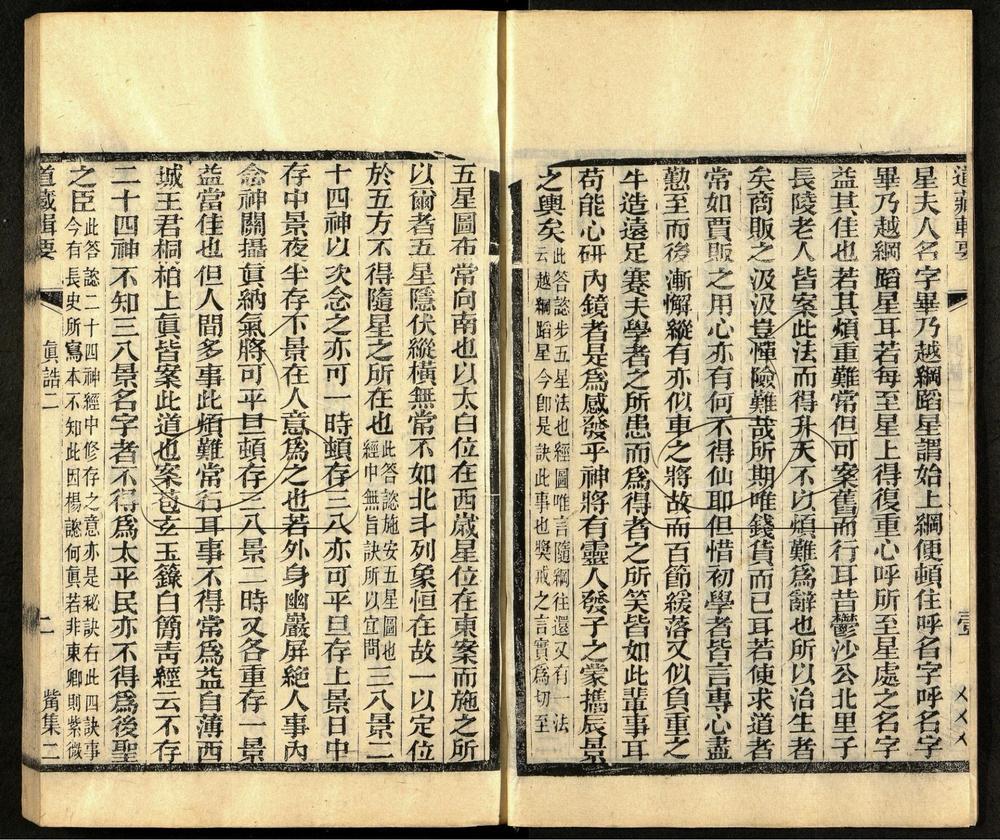 道藏輯要
星夫人名字畢乃越綱蹈星謂始上綱便頓住呼名字呼名字
畢乃越綱蹈星耳若每至星上得復重心呼所至星處之名字
益其佳也若其煩重難常但可案舊而行耳昔鬱沙公北里子
長陵老人皆案此法而得升天不以煩難為辭也所以治生者
矣商販之汲汲豈憚險難哉所期唯錢貨而已耳若使求道者
常如賈販之用心亦有何不得仙耶但惜初學者皆言專心盡
懃至而後漸懈縱有亦似車之將故而百節緩落又似負重之
牛造遠足蹇夫學者之所患而為得者之所笑皆如此輩事耳
苟能心研內鏡者是為感發乎神將有靈人發子之蒙攜辰景
之輿矣此答諡步五星法也經圖唯言隨綱往還又有一法
云越綱蹈星今卽是訣此事也獎戒之言實為切至
五星圖布常向南也以太白位在西歲星位在東案而施之所
以爾者五星隱伏縱橫無常不如北斗列象恒在故一以定位
於五方不得隨星之所在也此答諡施安五星圖也
經中無旨訣所以宜問三八景二
十四神以次念之亦可一時頓存三八亦可平旦存上景日中
存中景夜半存下景在人意為之也若外身幽巖屏絕人事內
念神關攝眞納氣將可平旦頓存三八景二時又各重存一景
益當佳也但人間多事此煩難常行耳事不得常為益自薄西
城王君桐柏上眞皆案此道也案苞玄玉籙白簡靑經云不存
二十四神不知三八景名字者不得為太平民亦不得為後聖
之臣此答諡二十四神經中修存之意亦是秘訣右此四訣事
今有長史所寫本不知此因楊諡何眞若非東卿則紫微
道藏輯要
眞誥二
二
觜集二